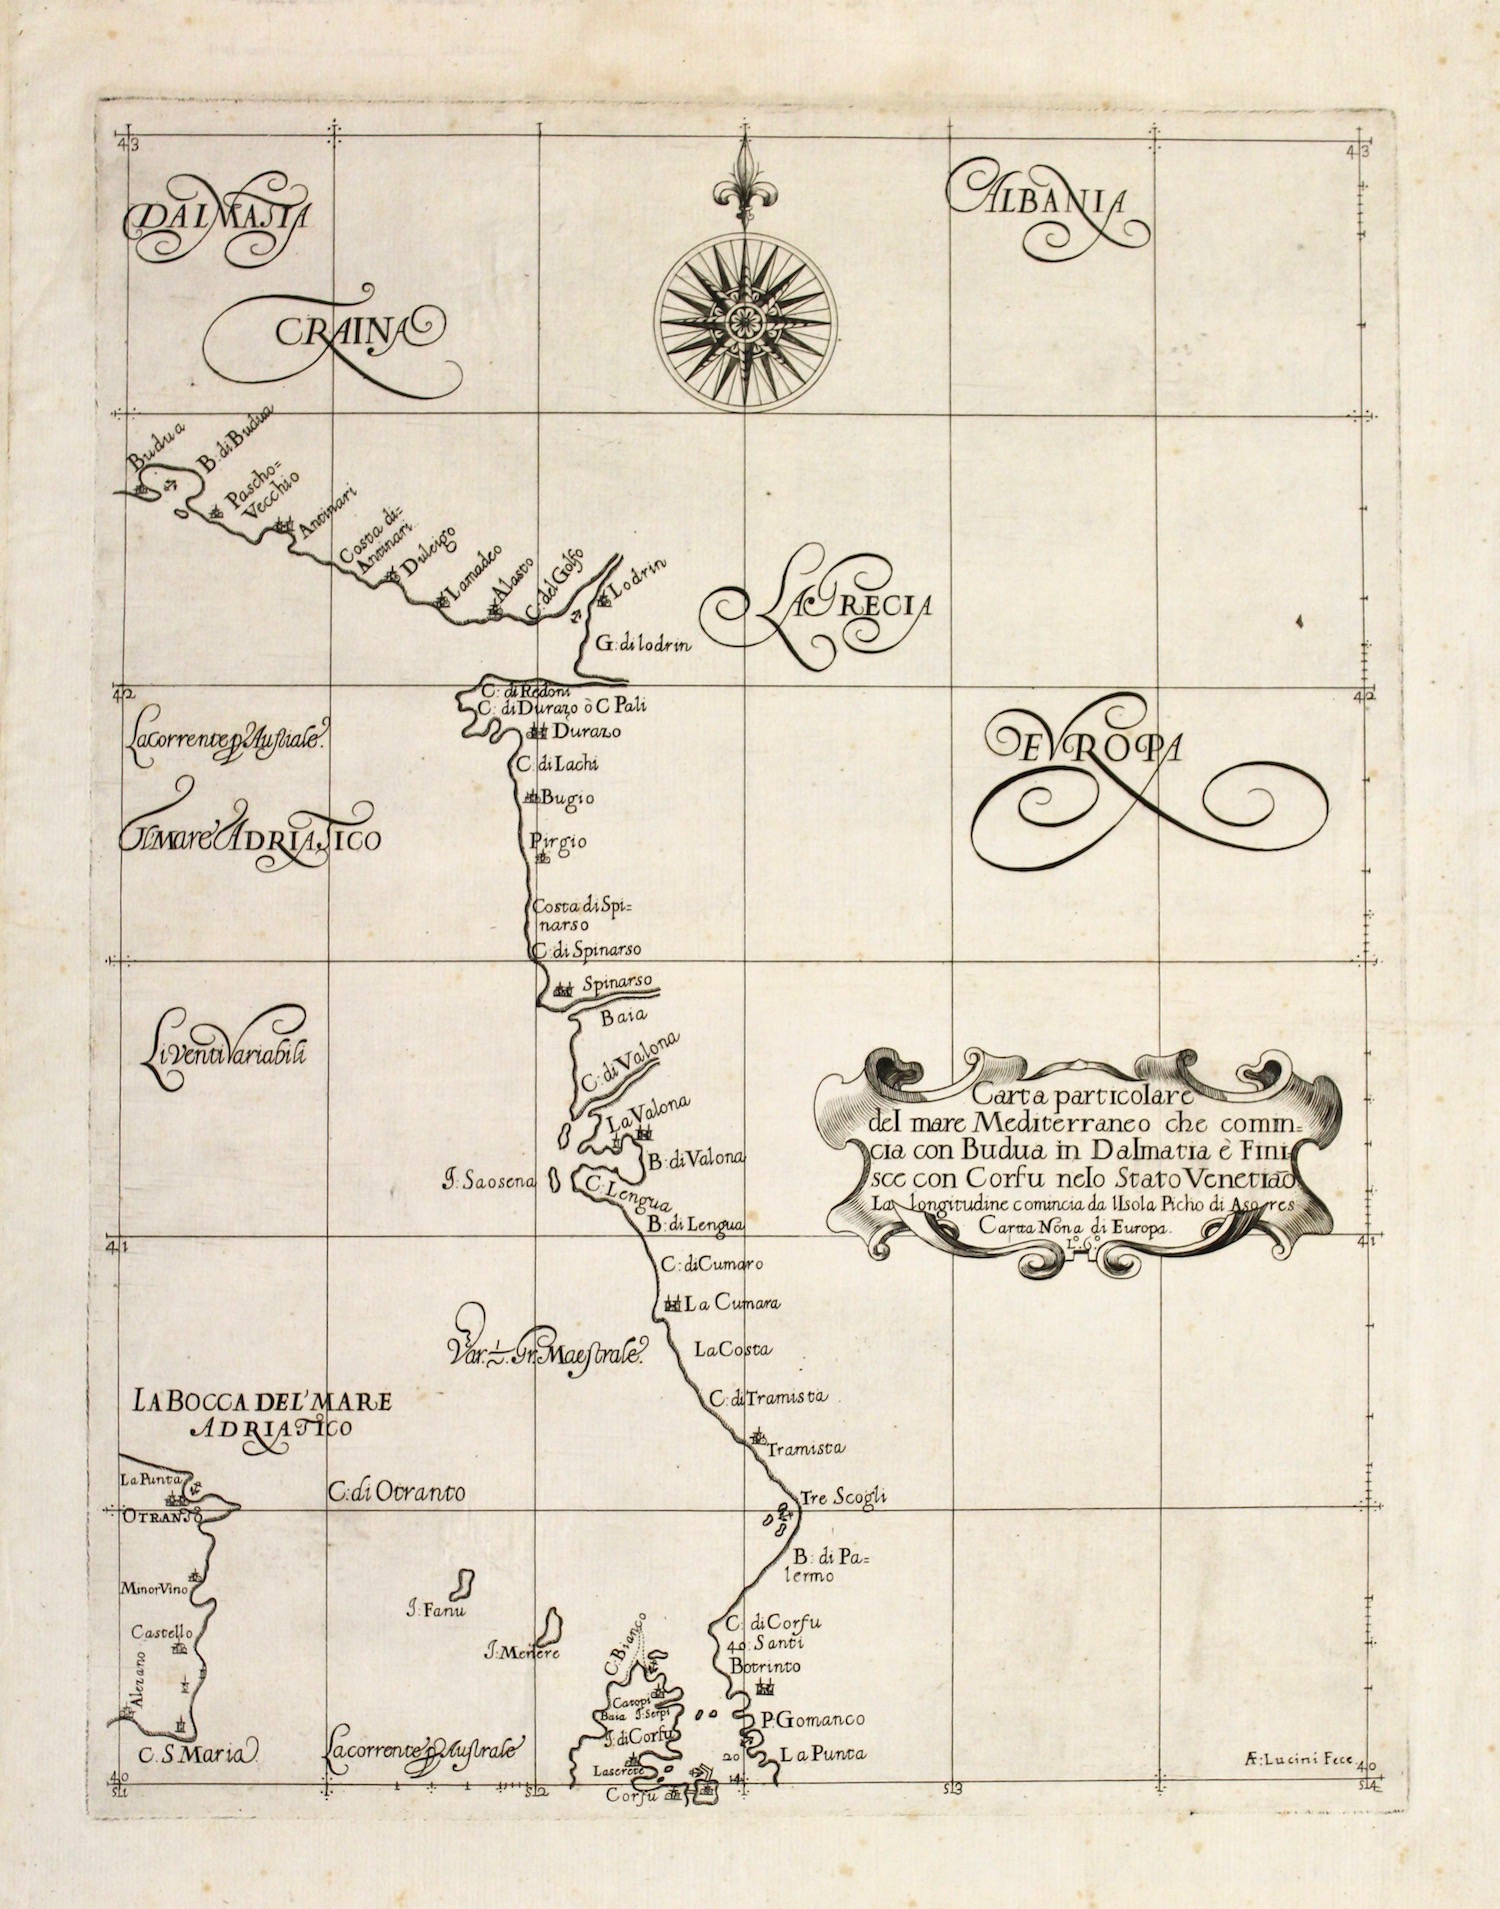 43
43
DALMATIA
ALBANIA
CRAINA
Budua
B: di Budua
Pascho=
Vecchio
Antinari
Costa di=
Antinari
Dulcigo
Lamadeo
Alasto
C: del Golfo
Lodrin
G: di lodrin
LA GRECIA
42
42
C: di Redoni
C: di Durazo ò C Pali
Durazo
C: di Lachi
Bugio
Pirgio
Costa di Spi=
narso
C: di Spinarso
Spinarso
Baia
La corrente p Australe.
Il Mare ADRIATICO
EVROPA
Li venti Variabili
C: di Valona
La Valona
B: di Valona
I: Saosena
C: Lengua
B: di Lengua
Carta particolare
del mare Mediterraneo che comin=
cia con Budua in Dalmatia è Fini
sce con Corfu nelo Stato Venetiao
La longitudine comincia da l'Isola Picho di Asores
Carta Nona di Europa.
L.º 6.º
41
41
C: di Cumaro
La Cumara
Var. Gr. Maestrale.
La Costa
C: di Tramista
Tramista
LA BOCCA DEL' MARE
ADRIATICO
La Punta
OTRANTO
C: di Otranto
Tre Scogli
B: di Pa=
lermo
Minor Vino
I: Fanu
Castello
I: Merlere
Alezano
C: Bianco
C: di Corfu
40: Santi
Botrinto
Catopi
Baia I: Serpi
I: di Corfu
P. Gomanco
C. S. Maria
La corrente p Australe
20
La Punta
Corfu
14
Æ: Lucini Fece
40
40
51
52
53
54